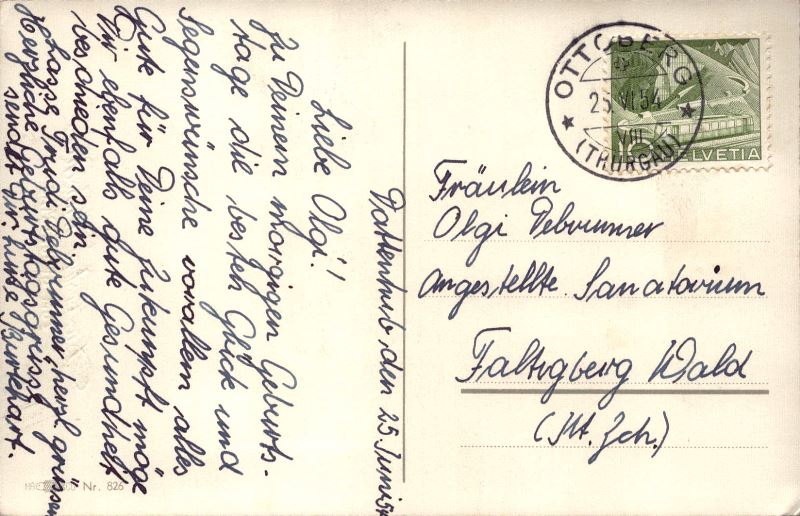 Dattenhub, den 25. Juni 54
Liebe Olgi!
Zu Deinem morgigen Geburts-
tage die besten Glück und
Segenswünsche vorallem alles
Gute für Deine Zukunft möge
Dir ebenfalls gute Gesundheit
beschieden sein.
Lasse Trudi Debrunner, herzl. grüssen
Herzliche Geburtstagsgrüsse
sendet Dir Burkhart.
Nr. 826
OTTOBERG
25 VI 54
VIII
(THURGAU)
10
HELVETIA
Fräulein
Olgi Debrunner
Angestellte Sanatorium
Faltigberg Wald
(Kt. Zch.)